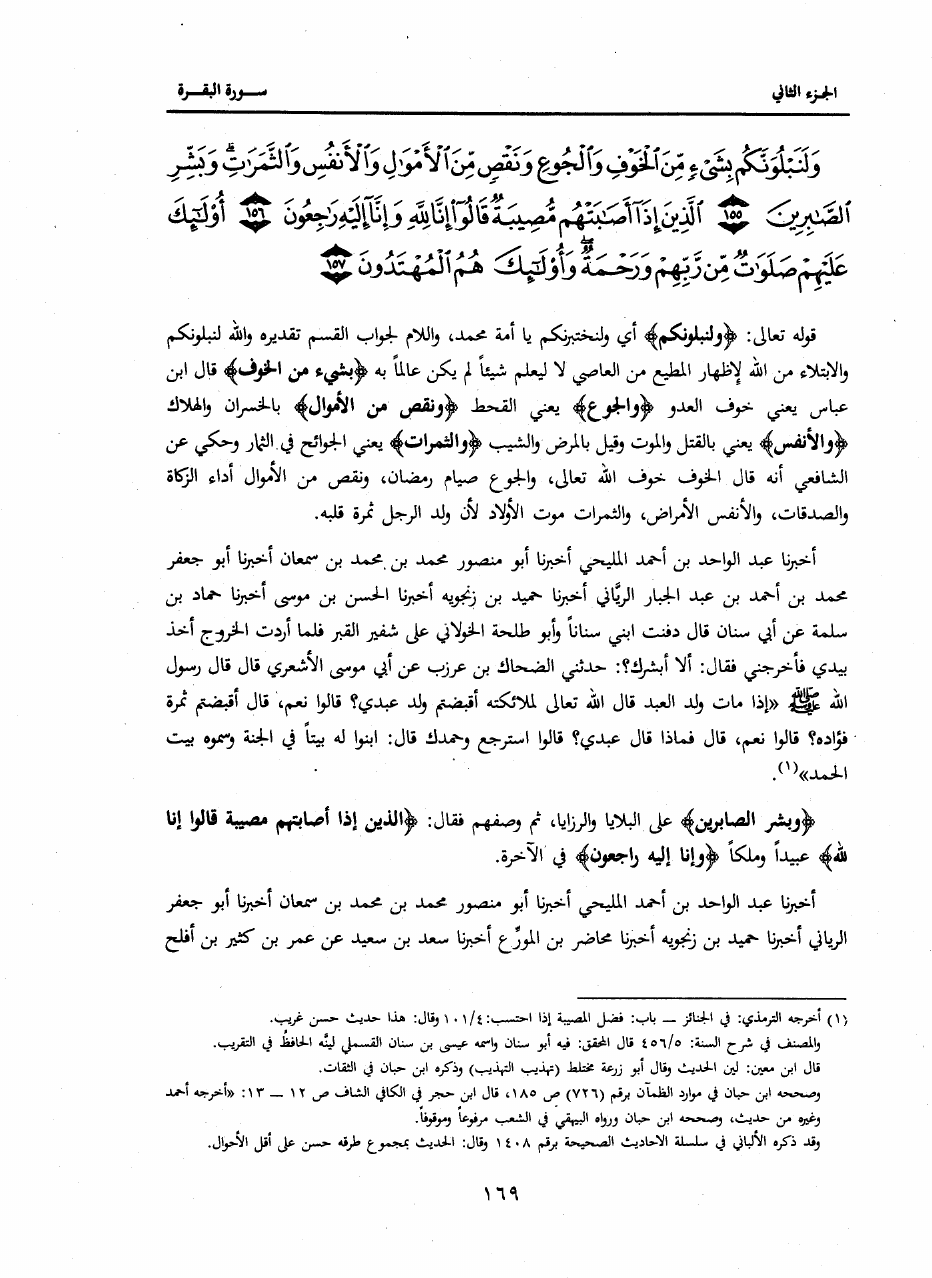 الجزء الثاني
سورة البقرة
وَلَنَبْلُوَنَّكُم بِشَىْءٍ مِّنَ ٱلْخَوْفِ وَٱلْجُوعِ وَنَقْصٍ مِّنَ ٱلْأَمْوَٰلِ وَٱلْأَنفُسِ وَٱلثَّمَرَٰتِ ۗ وَبَشِّرِ
ٱلصَّٰبِرِينَ ﴿١٥٥﴾ ٱلَّذِينَ إِذَآ أَصَٰبَتْهُم مُّصِيبَةٌ قَالُوٓا۟ إِنَّا لِلَّهِ وَإِنَّآ إِلَيْهِ رَٰجِعُونَ ﴿١٥٦﴾ أُو۟لَٰٓئِكَ
عَلَيْهِمْ صَلَوَٰتٌ مِّن رَّبِّهِمْ وَرَحْمَةٌ ۖ وَأُو۟لَٰٓئِكَ هُمُ ٱلْمُهْتَدُونَ ﴿١٥٧﴾
قوله تعالى: ﴿ولنبلونكم﴾ أي ولنختبرنكم يا أمة محمد، واللام لجواب القسم تقديره والله لنبلونكم
والابتلاء من الله لإظهار المطيع من العاصي لا ليعلم شيئاً لم يكن عالماً به ﴿بشيء من الخوف﴾ قال ابن
عباس يعني خوف العدو ﴿والجوع﴾ يعني القحط ﴿ونقص من الأموال﴾ بالخسران والهلاك
﴿والأنفس﴾ يعني بالقتل والموت وقيل بالمرض والشيب ﴿والثمرات﴾ يعني الجوائح في الثمار وحكي عن
الشافعي أنه قال الخوف خوف الله تعالى، والجوع صيام رمضان، ونقص من الأموال أداء الزكاة
والصدقات، والأنفس الأمراض، والثمرات موت الأولاد لأن ولد الرجل ثمرة قلبه.
أخبرنا عبد الواحد بن أحمد المليحي أخبرنا أبو منصور محمد بن محمد بن سمعان أخبرنا أبو جعفر
محمد بن أحمد بن عبد الجبار الريَّاني أخبرنا حميد بن زنجويه أخبرنا الحسن بن موسى أخبرنا حماد بن
سلمة عن أبي سنان قال دفنت ابني سناناً وأبو طلحة الخولاني على شفير القبر فلما أردت الخروج أخذ
بيدي فأخرجني فقال: ألا أبشرك؟: حدثني الضحاك بن عرزب عن أبي موسى الأشعري قال قال رسول
الله ﷺ «إذا مات ولد العبد قال الله تعالى لملائكته أقبضتم ولد عبدي؟ قالوا نعم، قال أقبضتم ثمرة
فؤاده؟ قالوا نعم، قال فماذا قال عبدي؟ قالوا استرجع وحمدك قال: ابنوا له بيتاً في الجنة وسموه بيت
الحمد»(١).
﴿وبشر الصابرين﴾ على البلايا والرزايا، ثم وصفهم فقال: ﴿الذين إذا أصابتهم مصيبة قالوا إنا
لله﴾ عبيداً وملكاً ﴿وإنا إليه راجعون﴾ في الآخرة.
أخبرنا عبد الواحد بن أحمد المليحي أخبرنا أبو منصور محمد بن محمد بن سمعان أخبرنا أبو جعفر
الرياني أخبرنا حميد بن زنجويه أخبرنا محاضر بن المورِّع أخبرنا سعد بن سعيد عن عمر بن كثير بن أفلح
(١) أخرجه الترمذي: في الجنائز — باب: فضل المصيبة إذا احتسب: ١٠١/٤ وقال: هذا حديث حسن غريب.
والمصنف في شرح السنة: ٤٥٦/٥ قال المحقق: فيه أبو سنان واسمه عيسى بن سنان القسملي ليَّنه الحافظُ في التقريب.
قال ابن معين: لين الحديث وقال أبو زرعة مختلط (تهذيب التهذيب) وذكره ابن حبان في الثقات.
وصححه ابن حبان في موارد الظمآن برقم (٧٢٦) ص ١٨٥، قال ابن حجر في الكافي الشاف ص ١٢ — ١٣: «أخرجه أحمد
وغيره من حديث، وصححه ابن حبان ورواه البيهقي في الشعب مرفوعاً وموقوفاً.
وقد ذكره الألباني في سلسلة الاحاديث الصحيحة برقم ١٤٠٨ وقال: الحديث بمجموع طرقه حسن على أقل الأحوال.
١٦٩